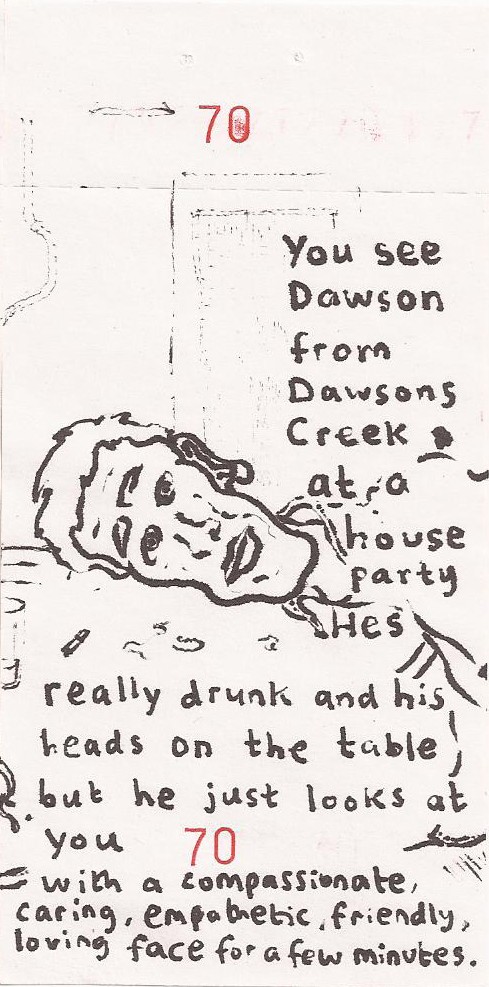 70
You see
Dawson
from
Dawsons
Creek
at a
house
party
Hes
really drunk and his
heads on the table,
but he just looks at
you 70
with a compassionate,
caring, empathetic, friendly,
loving face for a few minutes.